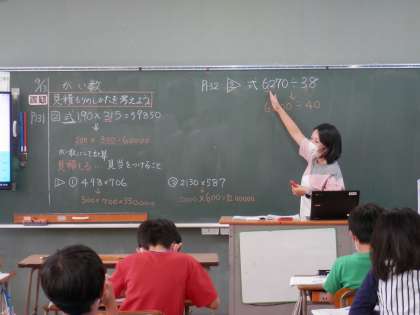 9/3 がい数
課題 見積もりのしかたを考えよう
P131 ② 式 190×315=59850
↓
200×300=60000
がい数にして計算
見積もる… 見当をつけること
▷① 448×706
↓
② 2130×587
↓
2000×600=1200000
P132 ▷ 式 6270÷38
↓
6000÷40